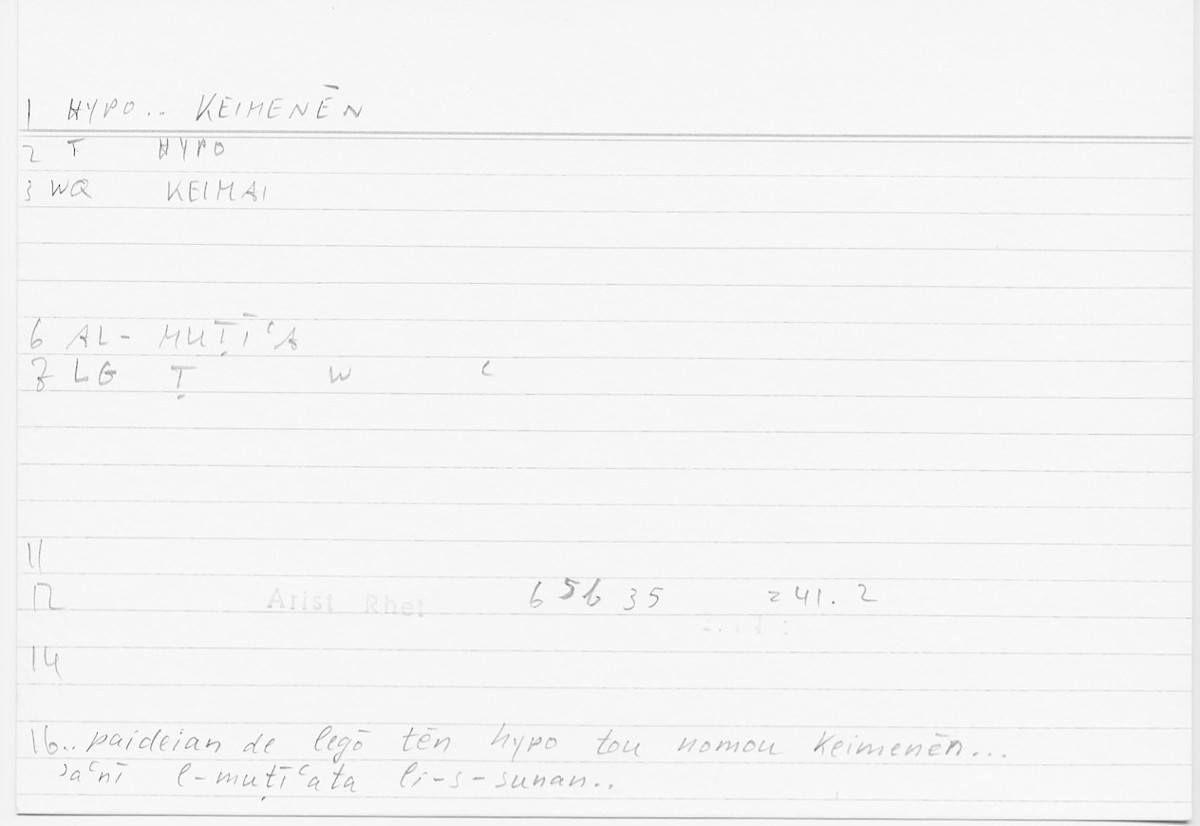 1 HYPO.. KEIMENĒN
2 T HYPO
3 WQ KEIMAI
6 AL- MUṬĪʿA
7 LG Ṭ W ʿ
11
12 Arist Rhet 6 56 35 = 41. 2
14
16.. paideian de legō tēn hypo tou nomou keimenēn...
ʾaʿnī l-muṭīʿata li-s-sunan..